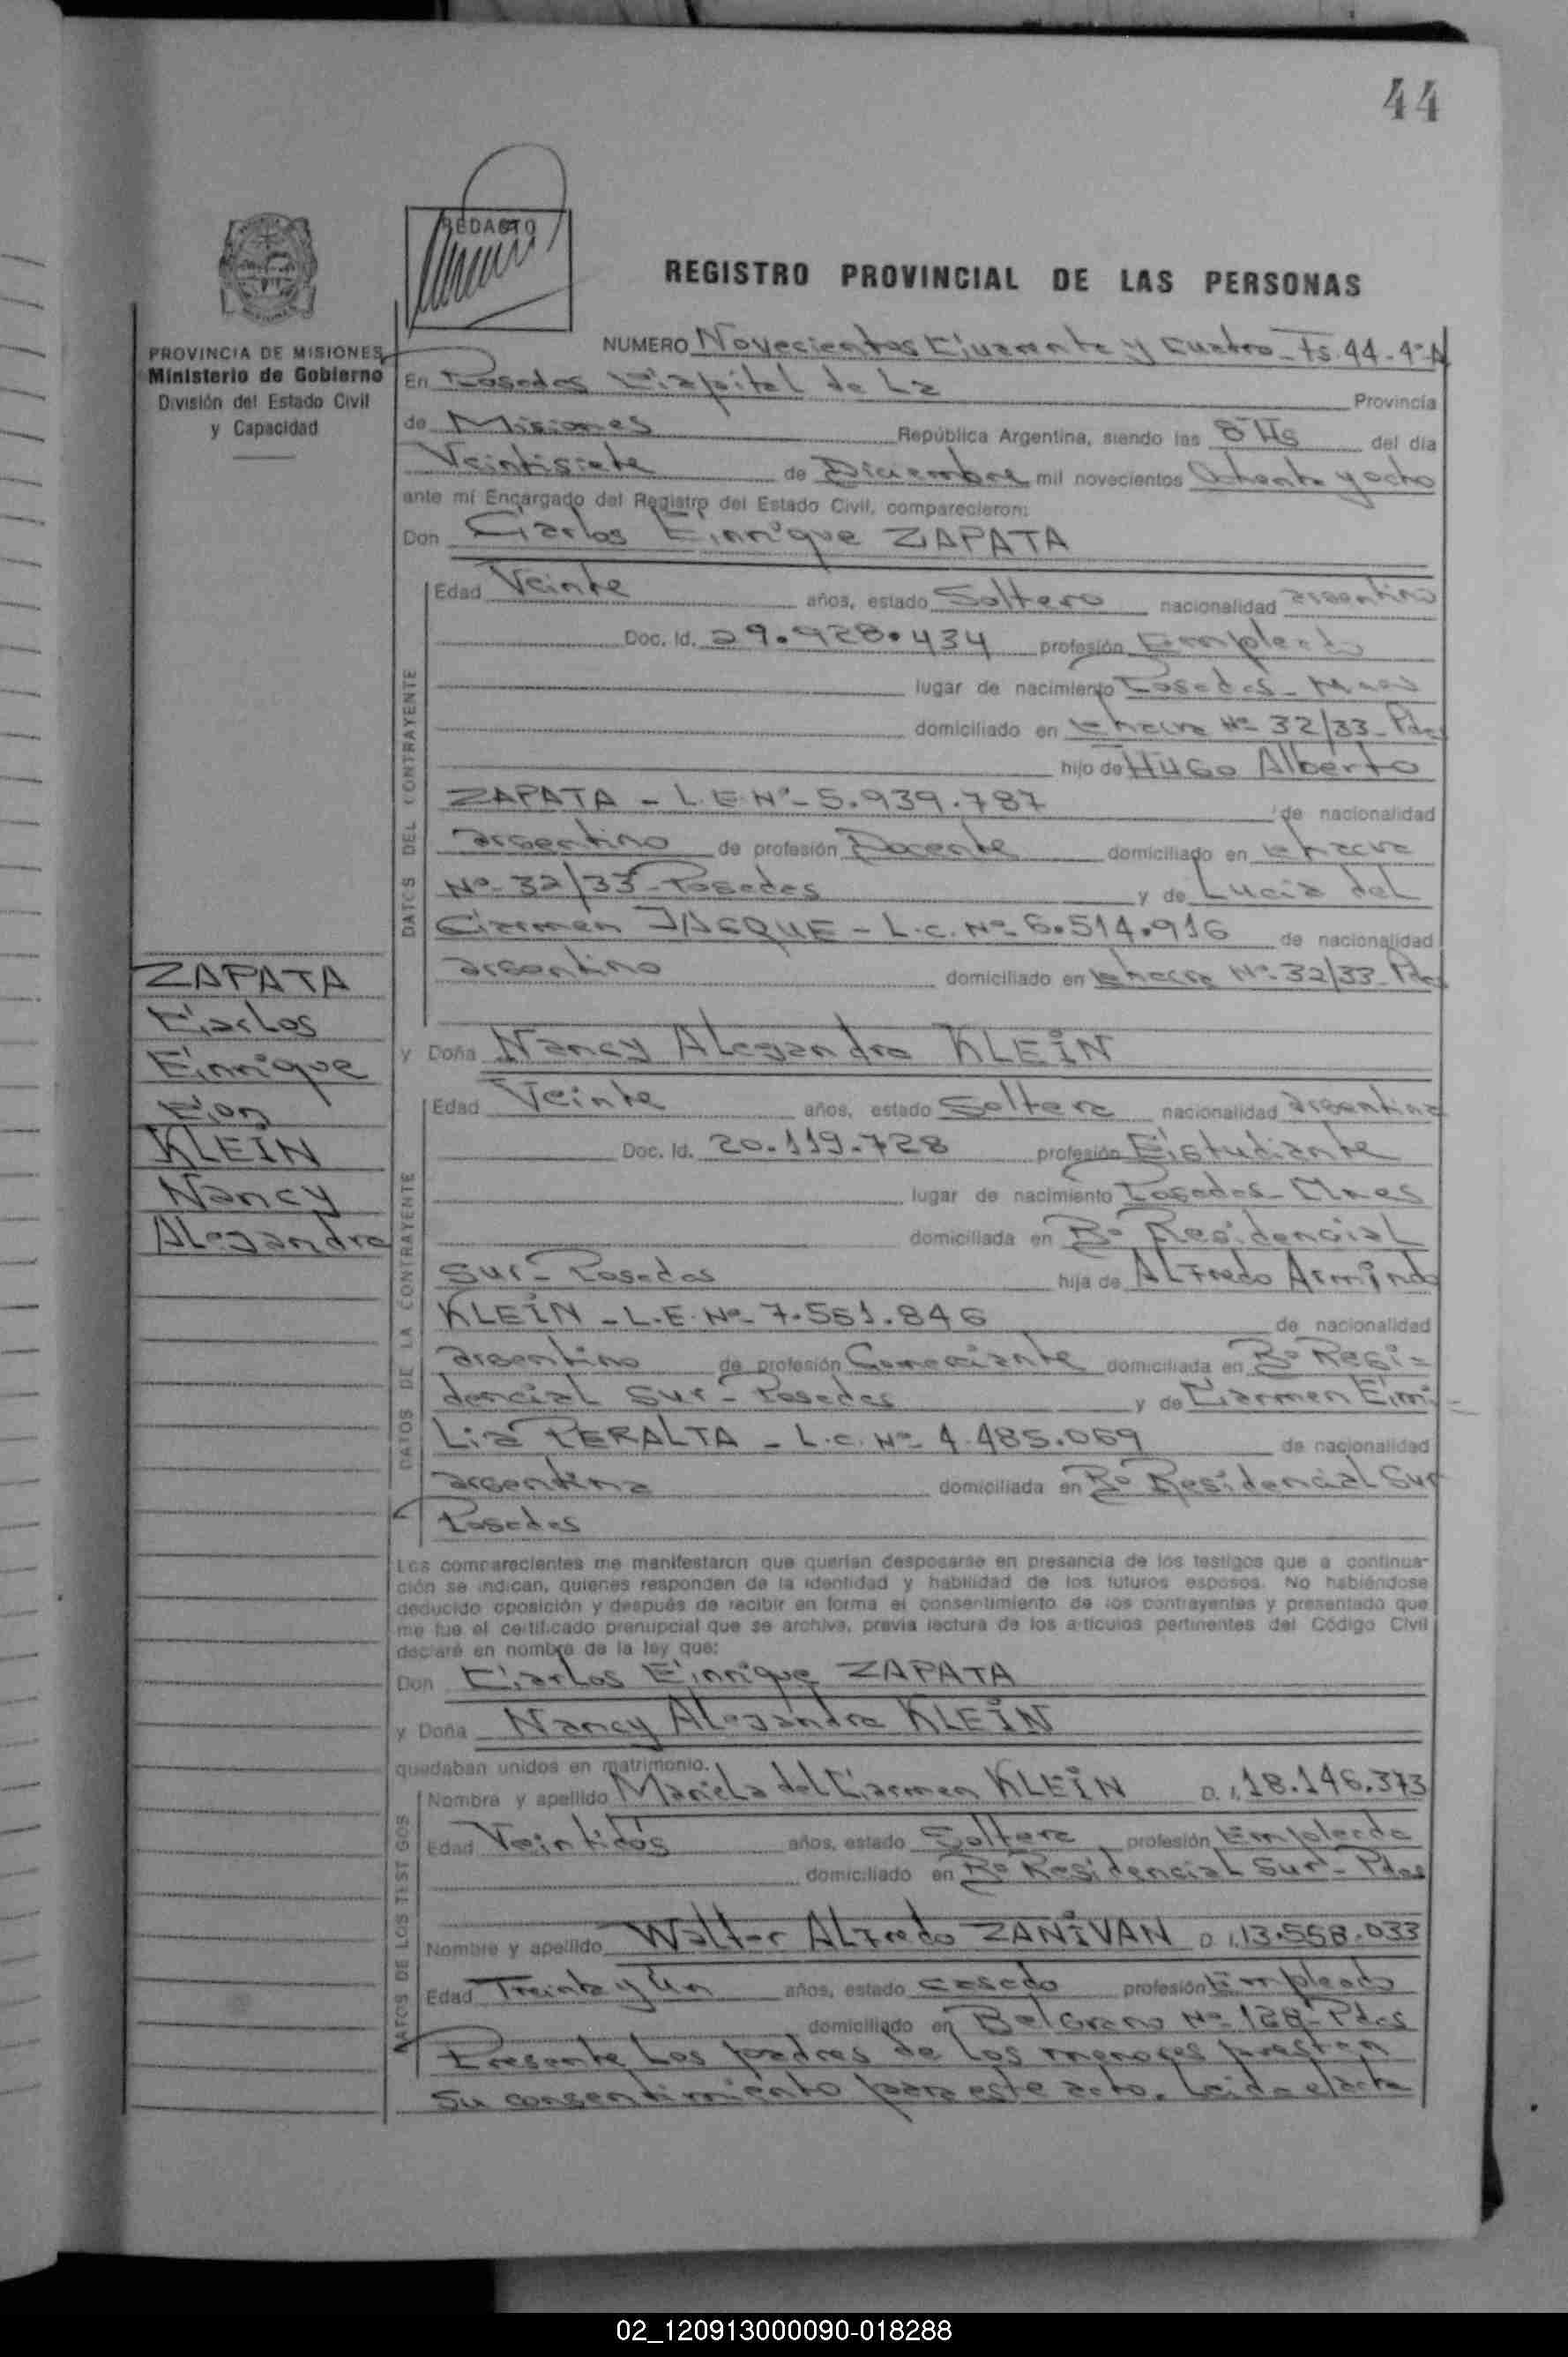 44
REDACTO
REGISTRO PROVINCIAL DE LAS PERSONAS
PROVINCIA DE MISIONES
Ministerio de Gobierno
División del Estado Civil
y Capacidad
NUMERO Novecientos Cuarenta y Cuatro - Fs. 44 - 4º A
En Posadas Capital de La Provincia
de Misiones República Argentina, siendo las 8 Hs del día
Veintisiete de Diciembre mil novecientos Ochenta y ocho
ante mí Encargado del Registro del Estado Civil, comparecieron:
Don Carlos Enrique ZAPATA
DATOS DEL CONTRAYENTE
Edad Veinte años, estado Soltero nacionalidad argentino
Doc. Id. 29.928.434 profesión Empleado
lugar de nacimiento Posadas - Mnes
domiciliado en Chacra Nº 32/33 - Pdas
hijo de Hugo Alberto
ZAPATA - L.E. Nº - 5.939.787 de nacionalidad
argentino de profesión Docente domiciliado en Chacra
Nº - 32/33 - Posadas y de Lucía del
Carmen - L.C. Nº - 6.514.916 de nacionalidad
argentino domiciliado en Chacra Nº - 32/33 - Pdas
y Doña Nancy Alejandra KLEIN
DATOS DE LA CONTRAYENTE
Edad Veinte años, estado Soltera nacionalidad argentina
Doc. Id. 20.119.728 profesión Estudiante
lugar de nacimiento Posadas - Mnes
domiciliada en Bº Residencial
Sur - Posadas hija de Alfredo Armindo
KLEIN - L.E. Nº 7.561.846 de nacionalidad
argentino de profesión Comerciante domiciliada en Bº Resi-
dencial Sur - Posadas y de Carmen Emi-
Lia PERALTA - L.C. Nº - 4.485.069 de nacionalidad
argentina domiciliada en Bº Residencial Sur
Posadas
ZAPATA
Carlos
Enrique
Con
KLEIN
Nancy
Alejandra
Los comparecientes me manifestaron que querían desposarse en presencia de los testigos que a continua-
ción se indican, quienes responden de la identidad y habilidad de los futuros esposos. No habiéndose
deducido oposición y después de recibir en forma el consentimiento de los contrayentes y presentado que
me fue el certificado prenupcial que se archiva, previa lectura de los artículos pertinentes del Código Civil
declaré en nombre de la ley que:
Don Carlos Enrique ZAPATA
y Doña Nancy Alejandra KLEIN
quedaban unidos en matrimonio.
DATOS DE LOS TESTIGOS
Nombre y apellido Mariela del Carmen KLEIN D. I. 18.146.373
Edad Veintidós años, estado Soltera profesión Empleada
domiciliado en Bº Residencial Sur - Pdas
Nombre y apellido Walter Alfredo ZANIVAN D. I. 13.558.033
Edad Treinta y Un años, estado casado profesión Empleado
domiciliado en Belgrano Nº - 128 - Pdas
Presente Los padres de Los menores prestan
su consentimiento para este acto. Leida el acta
02_120913000090-018288